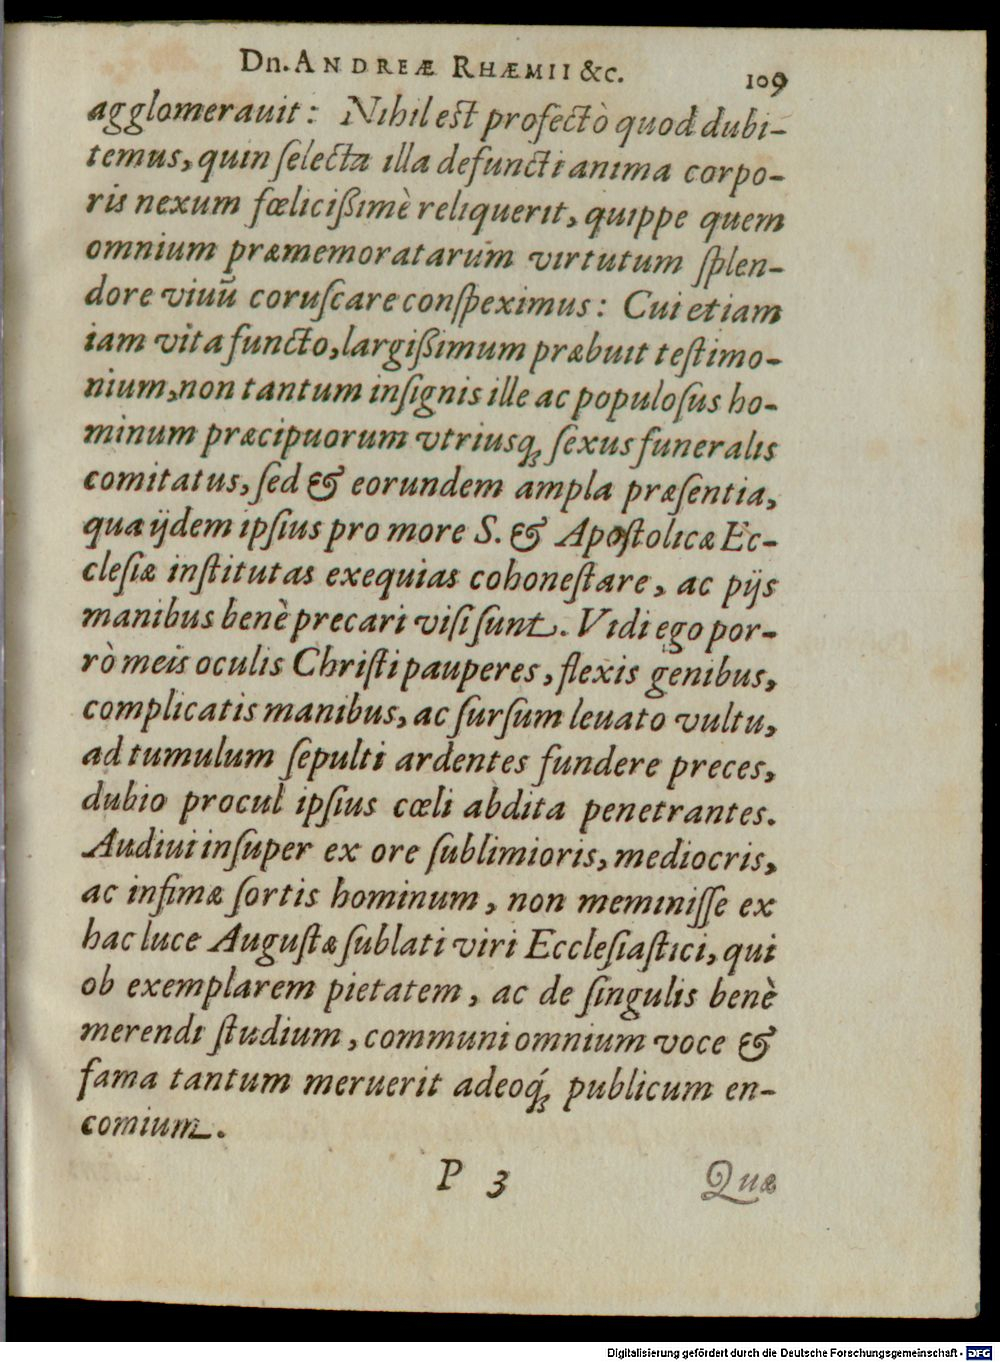 Dn. ANDREÆ RHÆMII &c. 109
agglomerauit: Nihil est profectò quod dubi-
temus, quin ſelecta illa defuncti anima corpo-
ris nexum fœlicißimè reliquerit, quippe quem
omnium præmemoratarum virtutum ſplen-
dore viuū coruſcare conſpeximus: Cui etiam
iam vita functo, largißimum præbuit teſtimo-
nium, non tantum inſignis ille ac populoſus ho-
minum præcipuorum vtriusq́; ſexus funeralis
comitatus, ſed & eorundem ampla præſentia,
qua ijdem ipſius pro more S. & Apoſtolicæ Ec-
cleſiæ inſtitutas exequias cohoneſtare, ac pijs
manibus benè precari viſi ſunt. Vidi ego por-
rò meis oculis Chriſti pauperes, flexis genibus,
complicatis manibus, ac ſurſum leuato vultu,
ad tumulum ſepulti ardentes fundere preces,
dubio procul ipſius cœli abdita penetrantes.
Audiui inſuper ex ore ſublimioris, mediocris,
ac infimæ ſortis hominum, non meminiſſe ex
hac luce Auguſtæ ſublati viri Eccleſiaſtici, qui
ob exemplarem pietatem, ac de ſingulis benè
merendi ſtudium, communi omnium voce &
fama tantum meruerit adeoq́; publicum en-
comium.
P 3 Quæ
Digitalisierung gefördert durch die Deutsche Forschungsgemeinschaft - DFG